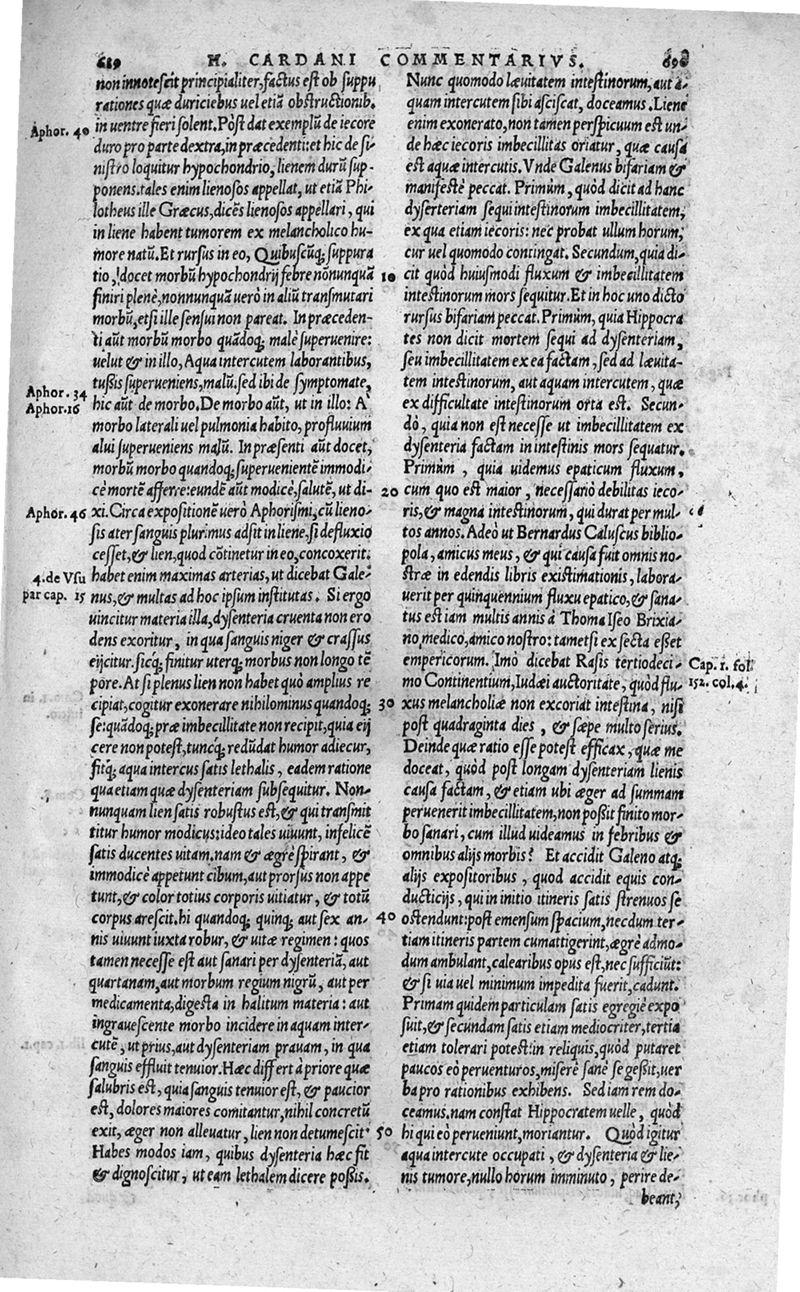 689 H. CARDANI COMMENTARIVS. 690
non innotescit principialiter, factus est ob suppu
rationes quæ duriciebus uel etiã obstructionib.
in uentre fieri solent. Pòst dat exemplũ de iecore
duro pro parte dextra, in præcedenti: et hic de si-
nistro loquitur hypochondrio, lienem durũ sup-
ponens. tales enim lienosos appellat, ut etiã Phi-
lotheus ille Græcus, dicẽs lienosos appellari, qui
in liene habent tumorem ex melancholico hu-
more natũ. Et rursus in eo, Quibuscũq; suppura
tio, docet morbũ hypochondrij febre nõnunquã
finiri plenè, nonnunquã uerò in aliũ transmutari
morbũ, etsi ille sensui non pareat. In præceden-
ti aũt morbũ morbo quãdoq; malè superuenire:
uelut & in illo, Aqua intercutem laborantibus,
tußis superueniens, malũ. sed ibi de symptomate,
hic aũt de morbo. De morbo aũt, ut in illo: A
morbo laterali uel pulmonia habito, profluuium
alui superueniens malũ. In præsenti aũt docet,
morbũ morbo quandoq; superuenientẽ immodi-
cè mortẽ afferre: eundẽ aũt modicè, salutẽ, ut di-
xi. Circa expositionẽ uerò Aphorismi, cũ lieno-
sis ater sanguis plurimus adsit in liene, si defluxio
cesset, & lien, quod cõtinetur in eo, concoxerit.
habet enim maximas arterias, ut dicebat Gale-
nus, & multas ad hoc ipsum institutas. Si ergo
uincitur materia illa, dysenteria cruenta non ero
dens exoritur, in qua sanguis niger & crassus
eijcitur. sicq; finitur uterq; morbus non longo tẽ
pore. At si plenus lien non habet quò amplius re
cipiat, cogitur exonerare nihilominus quandoq;
se: quãdoq; præ imbecillitate non recipit, quia eij
cere non potest, tuncq; redũdat humor ad iecur,
fitq; aqua intercus satis lethalis, eadem ratione
qua etiam quæ dysenteriam subsequitur. Non-
nunquam lien satis robustus est, & qui transmit
titur humor modicus: ideo tales uiuunt, infelicẽ
satis ducentes uitam, nam & ægrè spirant, &
immodicè appetunt cibum, aut prorsus non appe
tunt, & color totius corporis uitiatur, & totũ
corpus arescit. hi quandoq; quinq; aut sex an-
nis uiuunt iuxta robur, & uitæ regimen: quos
tamen necesse est aut sanari per dysenteriã, aut
quartanam, aut morbum regium nigrũ, aut per
medicamenta, digesta in halitum materia: aut
ingrauescente morbo incidere in aquam inter-
cutẽ, ut prius, aut dysenteriam prauam, in qua
sanguis effluit tenuior. Hæc differt à priore quæ
salubris est, quia sanguis tenuior est, & paucior
est, dolores maiores comitantur, nihil concretũ
exit, æger non alleuatur, lien non detumescit.
Habes modos iam, quibus dysenteria hæc fit
& dignoscitur, ut eam lethalem dicere poßis.
Aphor. 40
Aphor. 34
Aphor. 16
Aphor. 46
4. de Vsu
par cap. 15
10
20
30
40
50
Nunc quomodo læuitatem intestinorum, aut a-
quam intercutem sibi asciscat, doceamus. Liene
enim exonerato, non tamen perspicuum est un-
de hæc iecoris imbecillitas oriatur, quæ causa
est aquæ intercutis. Vnde Galenus bifariam &
manifestè peccat. Primùm, quòd dicit ad hanc
dyserteriam sequi intestinorum imbecillitatem,
ex qua etiam iecoris: nec probat ullum horum,
cur uel quomodo contingat. Secundum, quia di-
cit quòd huiusmodi fluxum & imbecillitatem
intestinorum mors sequitur. Et in hoc uno dicto
rursus bifariam peccat. Primùm, quia Hippocra
tes non dicit mortem sequi ad dysenteriam,
seu imbecillitatem ex ea factam, sed ad læuita-
tem intestinorum, aut aquam intercutem, quæ
ex difficultate intestinorum orta est. Secun-
dò, quia non est necesse ut imbecillitatem ex
dysenteria factam in intestinis mors sequatur.
Primùm, quia uidemus epaticum fluxum,
cum quo est maior, necessariò debilitas ieco-
ris, & magna intestinorum, qui durat per mul-
tos annos. Adeò ut Bernardus Caluscus biblio-
pola, amicus meus, & qui causa fuit omnis no-
stræ in edendis libris existimationis, labora-
uerit per quinquennium fluxu epatico, & sana-
tus est iam multis annis à Thoma Iseo Brixia-
no medico, amico nostro: tametsi ex secta esset
empericorum. Imò dicebat Rasis tertiodeci-
mo Continentium, Iudæi auctoritate, quòd flu-
xus melancholiæ non excoriat intestina, nisi
post quadraginta dies, & sæpe multo serius.
Deinde quæ ratio esse potest efficax, quæ me
doceat, quòd post longam dysenteriam lienis
causa factam, & etiam ubi æger ad summam
peruenerit imbecillitatem, non poßit finito mor-
bo sanari, cum illud uideamus in febribus &
omnibus alijs morbis? Et accidit Galeno atq;
alijs expositoribus, quod accidit equis con-
ducticijs, qui in initio itineris satis strenuos se
ostendunt: post emensum spacium, necdum ter-
tiam itineris partem cum attigerint, ægrè admo-
dum ambulant, calearibus opus est, nec sufficiũt:
& si uia uel minimum impedita fuerit, cadunt.
Primam quidem particulam satis egregiè expo
suit, & secundam satis etiam mediocriter, tertia
etiam tolerari potest: in reliquis, quòd putaret
paucos eò peruenturos, miserè sanè se geßit, uer
ba pro rationibus exhibens. Sed iam rem do-
ceamus. nam constat Hippocratem uelle, quòd
hi qui eò perueniunt, moriantur. Quòd igitur
aqua intercute occupati, & dysenteria & lie-
nis tumore, nullo horum imminuto, perire de-
beant,
Cap. 1. fol.
152. col. 4.